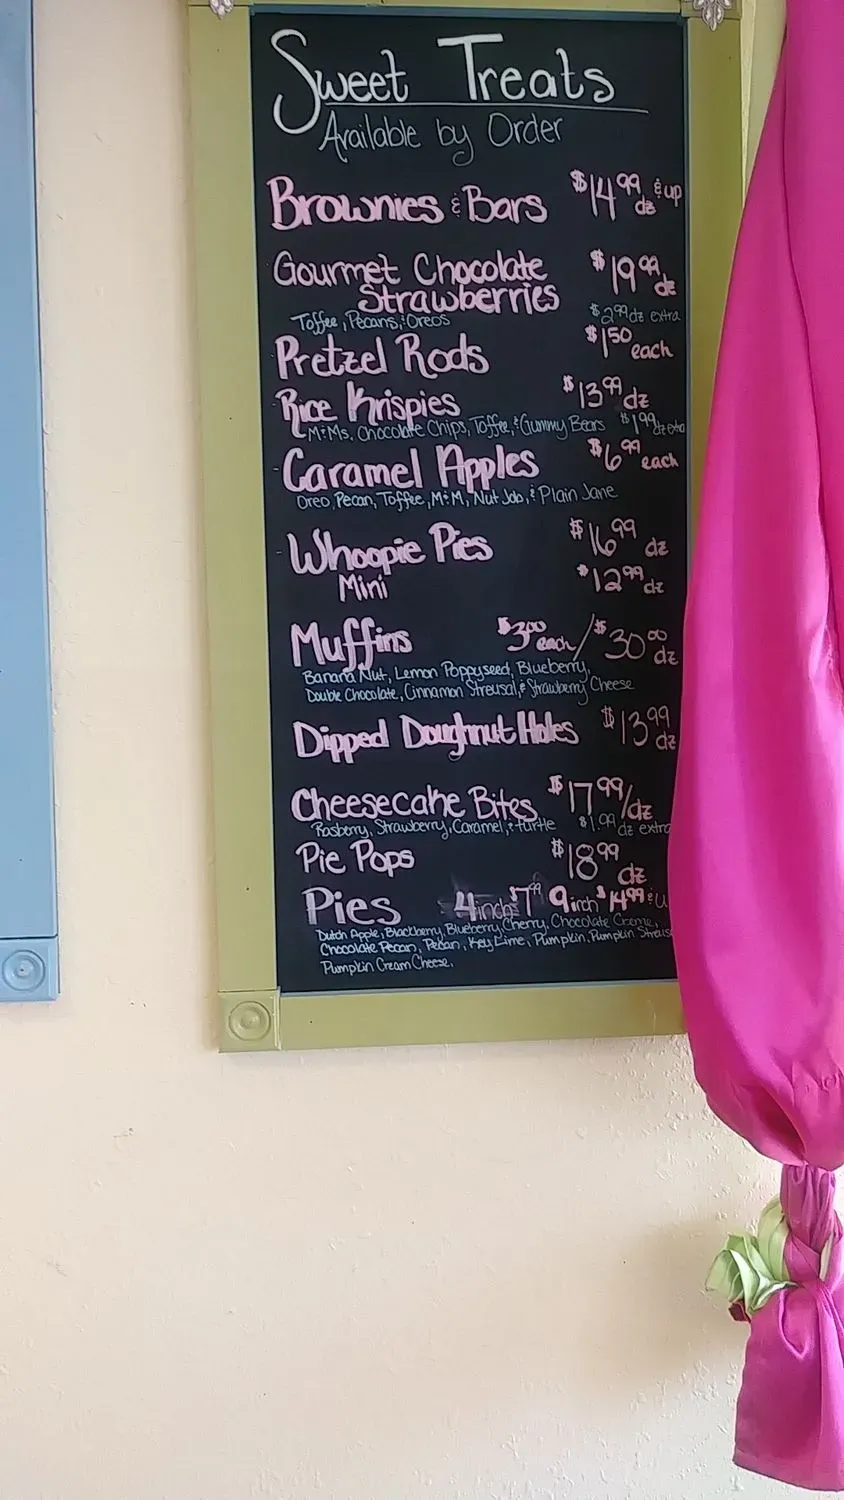 Sweet Treats
Available by Order
Brownies & Bars $14.99 dz & up
Gourmet Chocolate $19.99 dz
Strawberries
Toffee, Pecans, & Oreos $2.99 dz extra
Pretzel Rods $1.50 each
Rice Krispies $13.99 dz
M&Ms, Chocolate Chips, Toffee, & Gummy Bears $1.99 dz extra
Caramel Apples $6.99 each
Oreo, Pecan, Toffee, M&M, Nut Job, & Plain Jane
Whoopie Pies $16.99 dz
Mini $12.99 dz
Muffins $3.00 each/$30.00 dz
Banana Nut, Lemon Poppyseed, Blueberry,
Double Chocolate, Cinnamon Streusal, & Strawberry Cheese
Dipped Doughnut Holes $13.99 dz
Cheesecake Bites $17.99/dz
Rasberry, Strawberry, Caramel, & turtle $1.99 dz extra
Pie Pops $18.99 dz
Pies 4inch $7.99 9inch $14.99 & u
Dutch Apple, Blackberry, Blueberry, Cherry, Chocolate Creme,
Chocolate Pecan, Pecan, Key Lime, Pumpkin, Pumpkin Streus
Pumpkin Cream Cheese.